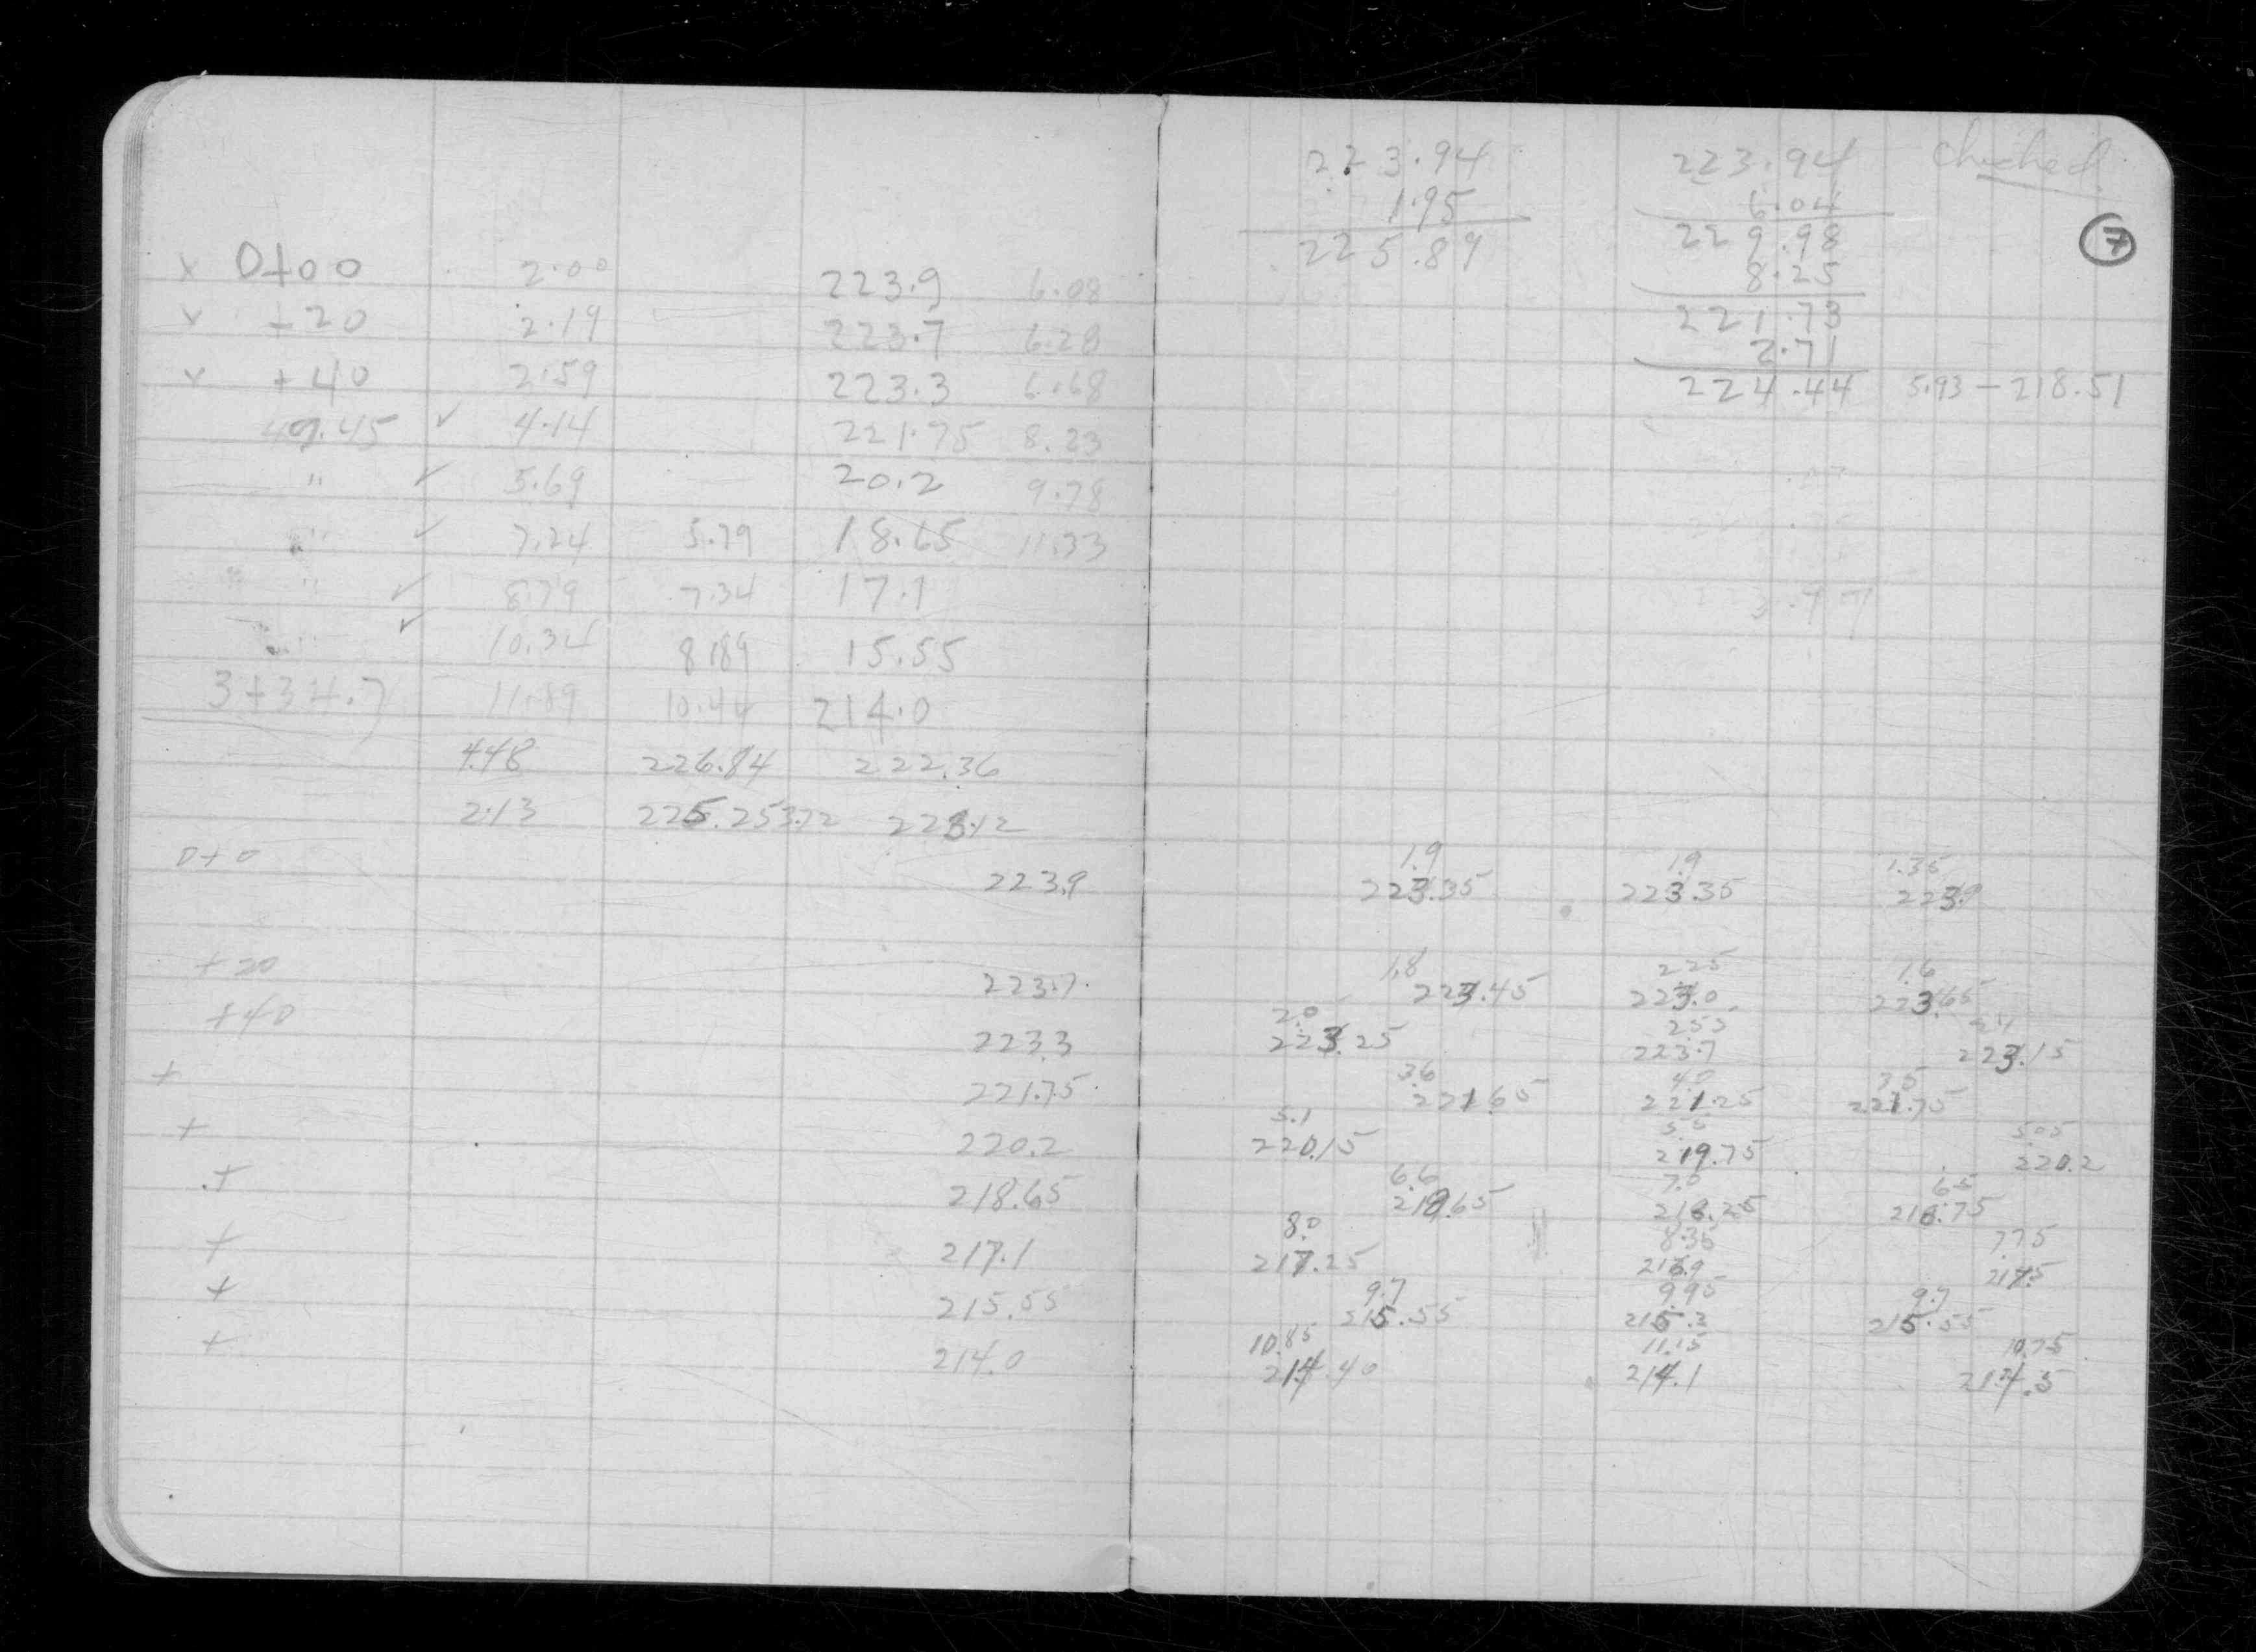 x 0+00 2.00 223.9 6.08
x +20 2.19 223.7 6.28
x +40 2.59 223.3 6.68
49.45 ✓ 4.14 221.75 8.23
" ✓ 5.69 20.2 9.78
" ✓ 7.24 5.79 18.65 11.33
" ✓ 8.79 7.34 17.1
" ✓ 10.34 8.89 15.55
3+34.7 11.89 10.44 214.0
4.48 226.84 222.36
2.13 225.25 3.72 223.12
0+0 223.9
+20 223.7
+40 223.3
+ 221.75
+ 220.2
+ 218.65
+ 217.1
+ 215.55
+ 214.0
223.94 223.94 checked
1.95 6.04
225.89 229.98 7
8.25
221.73
2.71
224.44 5.93 - 218.51
1.9 1.9 1.35
223.35 223.35 223.9
1.8 2.25 1.6
223.45 223.0 223.65
2.0 2.55
223.25 223.7 223.15
3.6 4.0 3.5
221.65 221.25 221.75
5.1 5.5 5.05
220.15 219.75 220.2
6.6 7.0 6.5
218.65 218.25 218.75
8.0 8.35 7.75
217.25 216.9 217.5
9.7 9.95 9.7
215.55 215.3 215.55
10.85 11.15 10.75
214.40 214.1 214.5